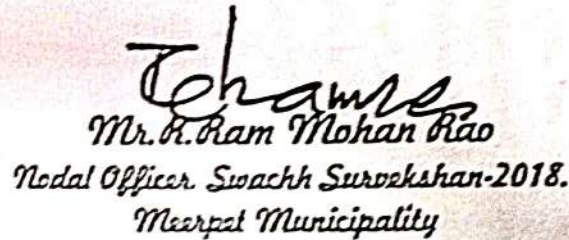 Mr.R.Ram Mohan Rao
Nodal Officer Swachh Survekshan-2018.
Meerpet Municipality